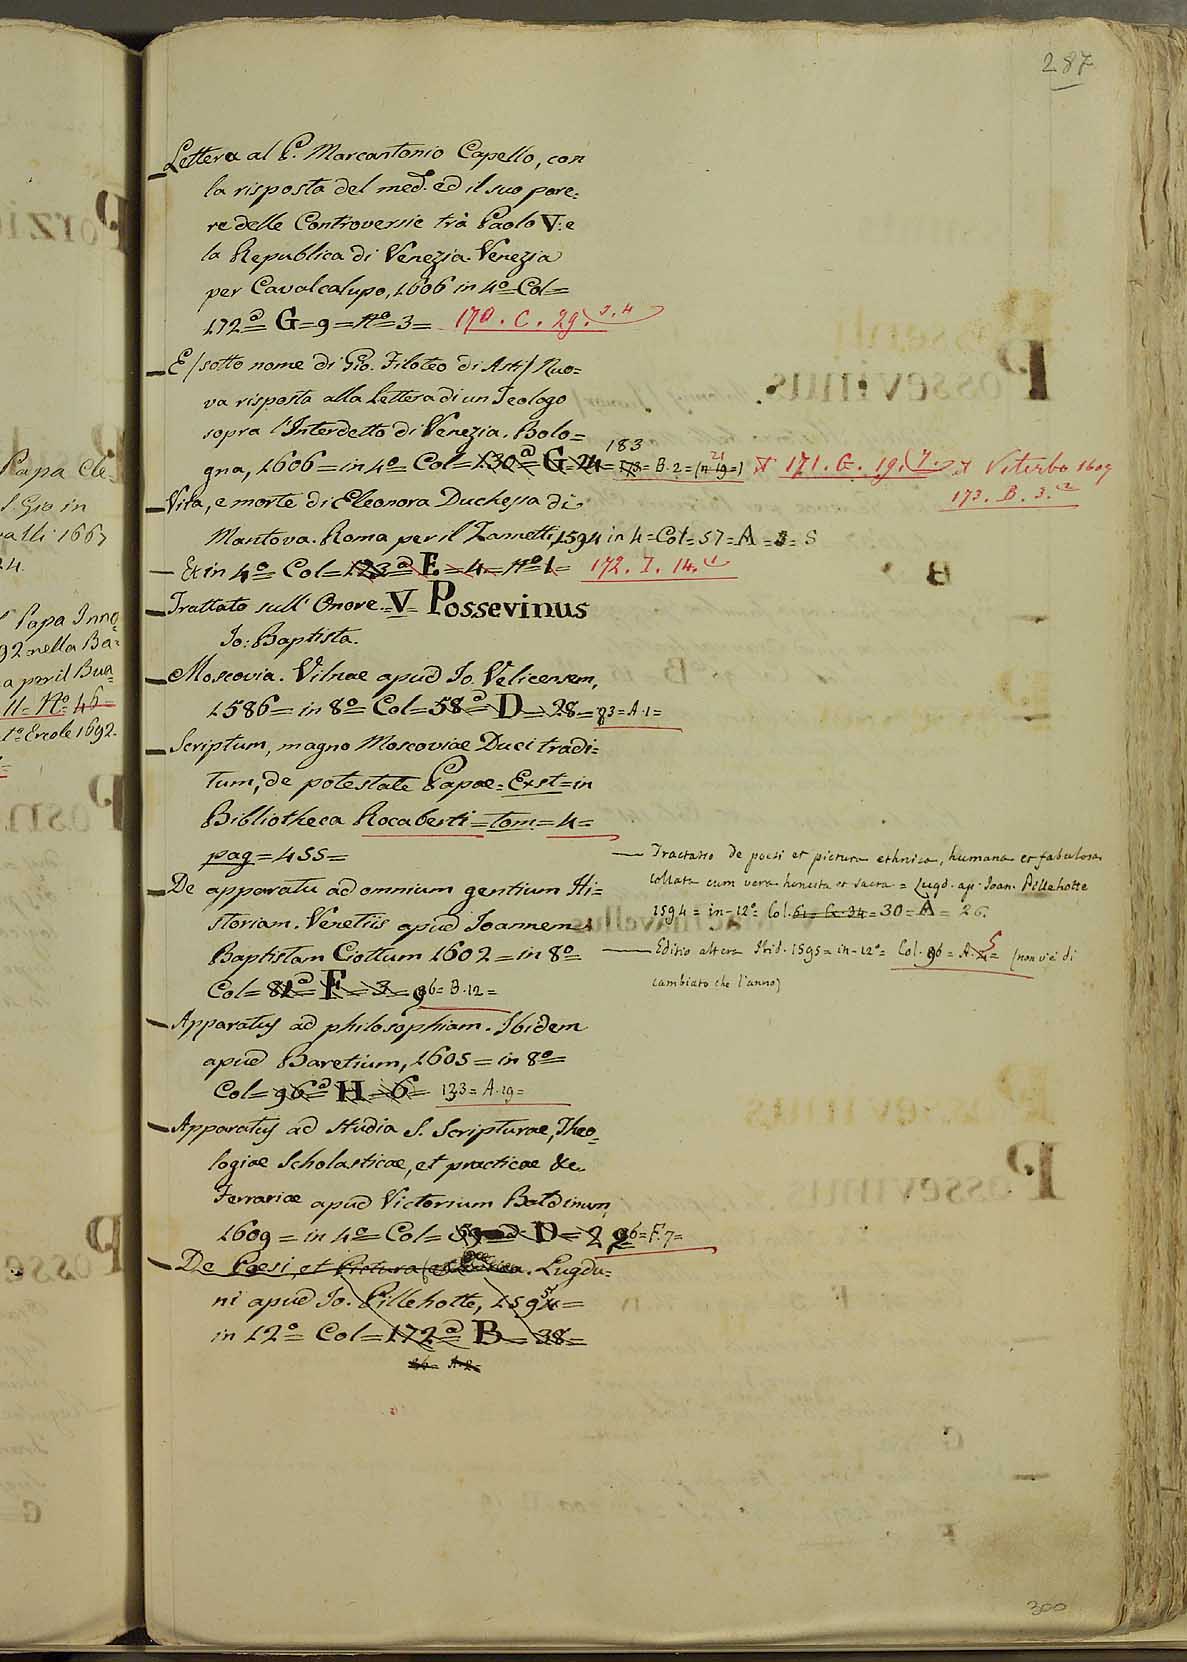 287
Lettera al P. Marcantonio Capello, con
la risposta del med. ed il suo pare=
re delle Controversie trà Paolo V. e
la Republica di Venezia. Venezia
per Cavalcalupo, 1606 in 4º Col=
172ª = G = 9 = Nº 3 = 170. C. 29. 3.4
E/sotto nome di Gio. Filoteo di Asti/ Nuo=
va risposta alla Lettera di un Teologo
sopra l'Interdetto di Venezia. Bolo=
183
gna, 1606 = in 4º Col = 130ª = G = 24 = 173 = B. 2 = (n 19 =) 171. G. 19. 7. Viterbo 1607
21
173. B. 3.
Vita, e morte di Eleonora Duchessa di
Mantova. Roma per il Zannetti, 1594 in 4 = Col = 57 = A = 8
Et in 4º Col = 123ª = E = 4 = Nº 1 = 172. I. 14.
Trattato sull' Onore. = V. Possevinus
Io: Baptista.
Moscovia. Vilnae apud Io. Velicensem,
1586 = in 8º Col = 58ª = D = 28 = 83 = A. 1 =
Scriptum, magno Moscoviae Duci tradi=
tum, de potestate Papae = Exst = in
Bibliotheca Rocaberti = tom = 4 =
pag = 455 =
De apparatu ad omnium gentium Hi=
storiam. Venetiis apud Joannem
Baptistam Ciottum 1602 = in 8º =
Col = 81ª = F = 3 = 96 = B. 12 =
Apparatus ad philosophiam. Ibidem
apud Baretium, 1605 = in 8º =
Col = 96ª = H = 6 = 133 = A. 19 =
Apparatus ad studia S. Scripturae, Theo=
logiae Scholasticae, et practicae &c.
Ferrariae apud Victorium Baldinum,
1609 = in 4º = Col = D = 2 96 = F. 7 =
De Poesi, et Pictura Lugdu=
ni apud Io. Pillehotte, 159
in 12º Col = 172ª = B = 38 =
Tractatio de poesi et pictura ethnica, humana et fabulosa
collata cum vera honesta et sacra = Lugd. ap. Joan. Pillehotte
1594 = in-12º = Col. 61 = G. 24 = 30 = A = 26.
Editio altera Ibid. 1595 = in-12º = Col. 96 = A. 5 = (non vi è di
cambiato che l'anno)
300
Papa Cle=
S. Gio in
valli 1667
24.
Papa Inno=
92 nella Ba=
a per il Bua=
11 = Nº 46 =
Ercole 1692.